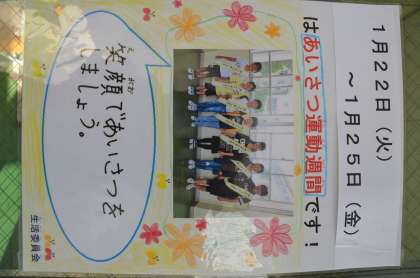 1月22日（火）
～1月25日（金）
はあいさつ運動週間です！
笑顔であいさつを
しましょう。
生活委員会